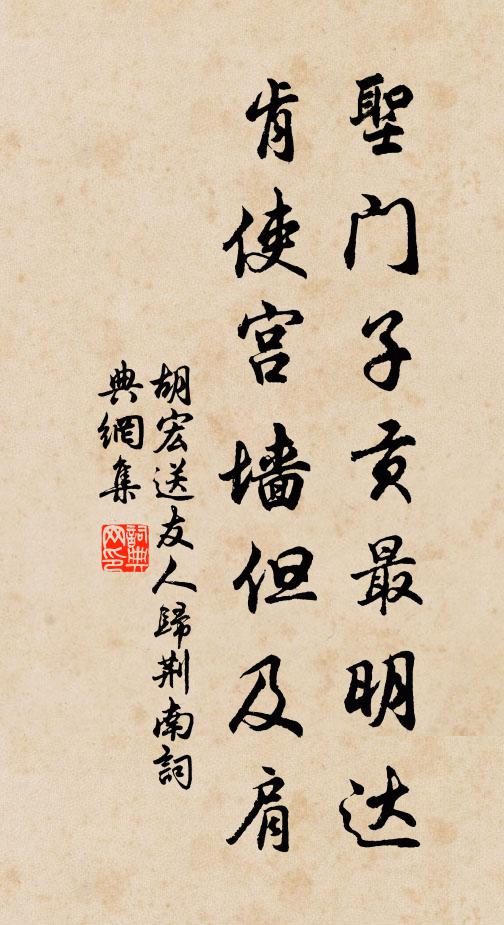 聖门子贡最明达
肯使宫墙但及肩
胡宏送友人歸荆南詞
典網集
詞典網印